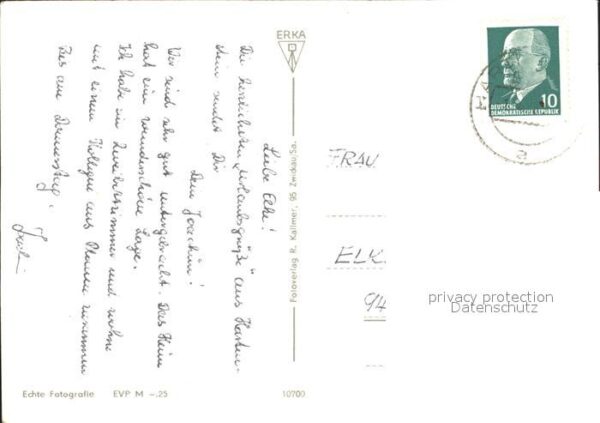 Liebe Elke!
Die herzlichsten „Urlaubsgrüße" aus Harten-
stein sendet Dir
Dein Joachim!
Wir sind sehr gut untergebracht. Das Heim
hat eine wunderschöne Lage.
Ich habe ein Zweibettzimmer und wohne
mit einem Kollegen aus Plauen zusammen
Bis am Donnerstag.
ERKA
Fotoverlag R. Kallmer, 95 Zwickau/Sa.
Echte Fotografie EVP M –.25
10700
10
DEUTSCHE
DEMOKRATISCHE REPUBLIK
a
FRAU
ELK
privacy protection
Datenschutz